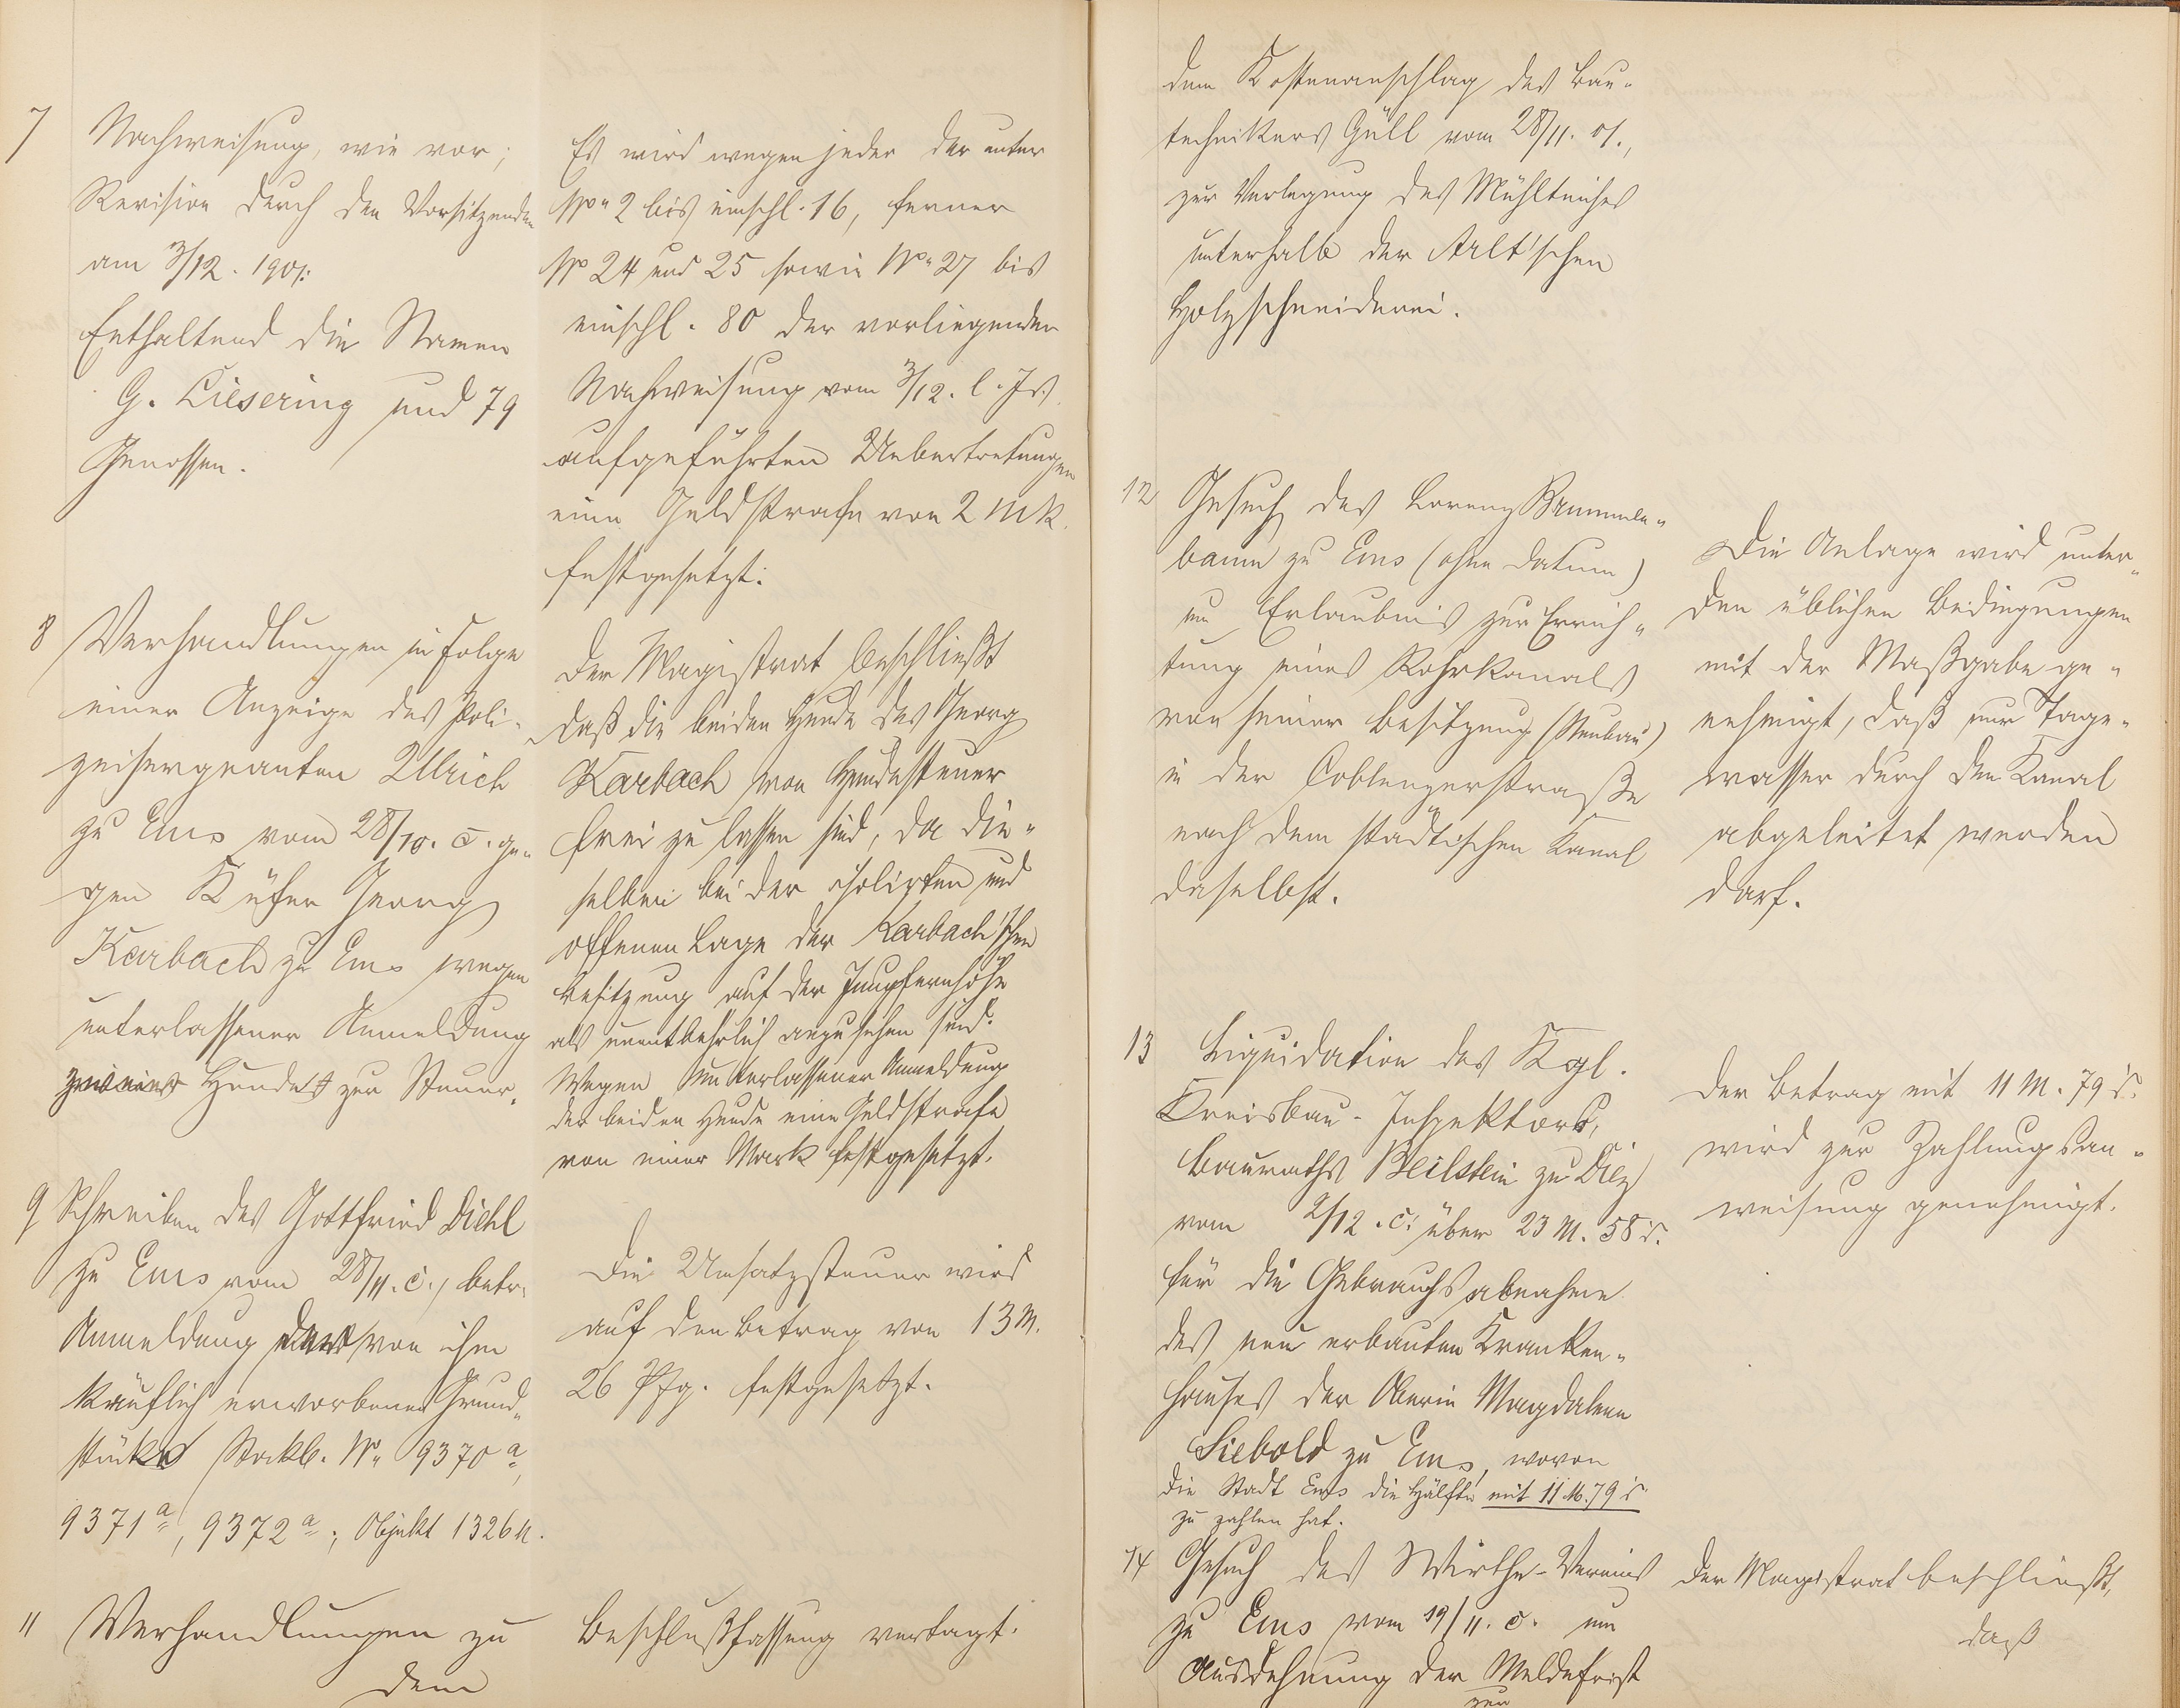 7
Nachweisung, wie vor;
Revision durch den Vorsitzenden
am 3/12. 1901.
Enthaltend die Namen
G. Liesering und 79
Genossen.
Es wird wegen jeder der unter
No 2 bis einschl. 16, ferner
No 24 und 25 sowie No 27 bis
einschl. 80 der vorliegenden
Nachweisung vom 3/12. l. Js.
aufgeführten Uebertretungen
eine Geldstrafe von 2 Mk.
festgesetzt.
8
Verhandlungen in Folge
einer Anzeige des Poli-
zeisergeanten Ullrich
zu Ems vom 28/10. c. ge-
gen Küfer Georg
Karbach zu Ems wegen
unterlassener Anmeldung
Hundes zur Steuer.
Der Magistrat beschließt
daß die beiden Hunde des Georg
Karbach von Hundesteuer
frei zu lassen sind, da die-
selben bei der isolirten und
offenen Lage der Karbach'schen
Besitzung auf der Jungfernhöhe
als unentbehrlich anzusehen sind.
Wegen Unterlassener Anmeldung
der beiden Hunde eine Geldstrafe
von einer Mark festgesetzt.
9 Schreiben des Gottfried Diehl
zu Ems vom 28/11. c., betr.
Anmeldung von ihm
käuflich erworbenen Grund-
stücks Stockb. No 9370 a,
9371 a, 9372 a; Objekt 1326 M.
Die Umsatzsteuer wird
auf den Betrag von 13 M.
26 Pfg. festgesetzt.
11 Verhandlungen zu
dem
Beschlußfassung vertagt.
dem Kostenanschlag des Bau-
technikers Güll vom 28/11. 01.,
zur Verlegung des Mühlteiches
unterhalb der Arlt'schen
Holzschneiderei.
12 Gesuch des Lorenz Brummen-
baum zu Ems (ohne Datum)
um Erlaubnis zur Errich-
tung eines Rohrkanals
von seiner Besitzung (Neubau)
in der Coblenzerstraße
nach dem städtischen Kanal
daselbst.
Die Anlage wird unter
den üblichen Bedingungen
mit der Maßgabe ge-
nehmigt, daß nur Tage-
wasser durch den Kanal
abgeleitet werden
darf.
13 Liquidation des Kgl.
Kreisbau-Inspektors,
Bauraths Beilstein zu Diez
vom 2/12. c. über 23 M. 58 d.
für die Gebrauchsabnahme
des neu erbauten Kranken-
hauses der Oberin Magdalene
Siebold zu Ems, wovon
die Stadt Ems die Hälfte mit 11 M. 79 d.
zu zahlen hat.
Der Betrag mit 11 M. 79 d.
wird zur Zahlungsan-
weisung genehmigt.
14 Gesuch des Wirthe-Vereins
zu Ems vom 19/11. c. um
Ausdehnung der Meldefrist
zur
Der Magistrat beschließt,
daß